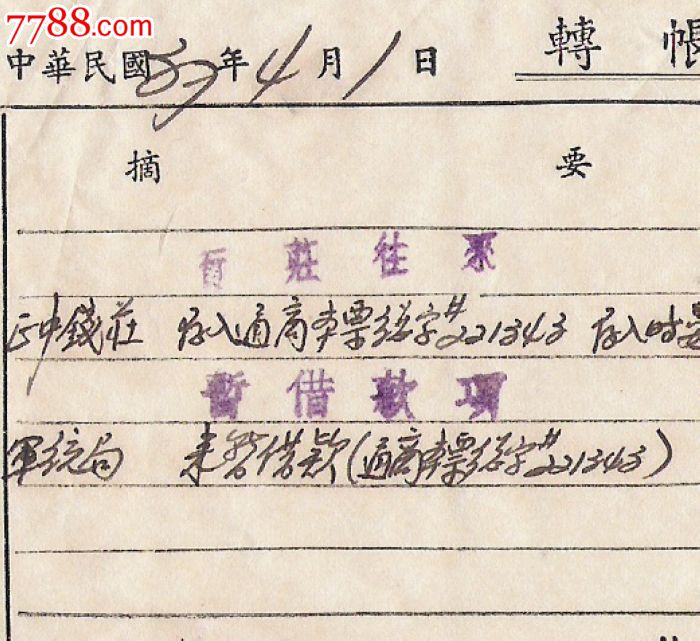 7788.com
中華民國37年4月1日 轉帳
摘 要
莊往來
正中錢莊 存入通商本票經字#221343 存入时
暫借款項
軍統局 来暫借款(通商本票經字#221343)